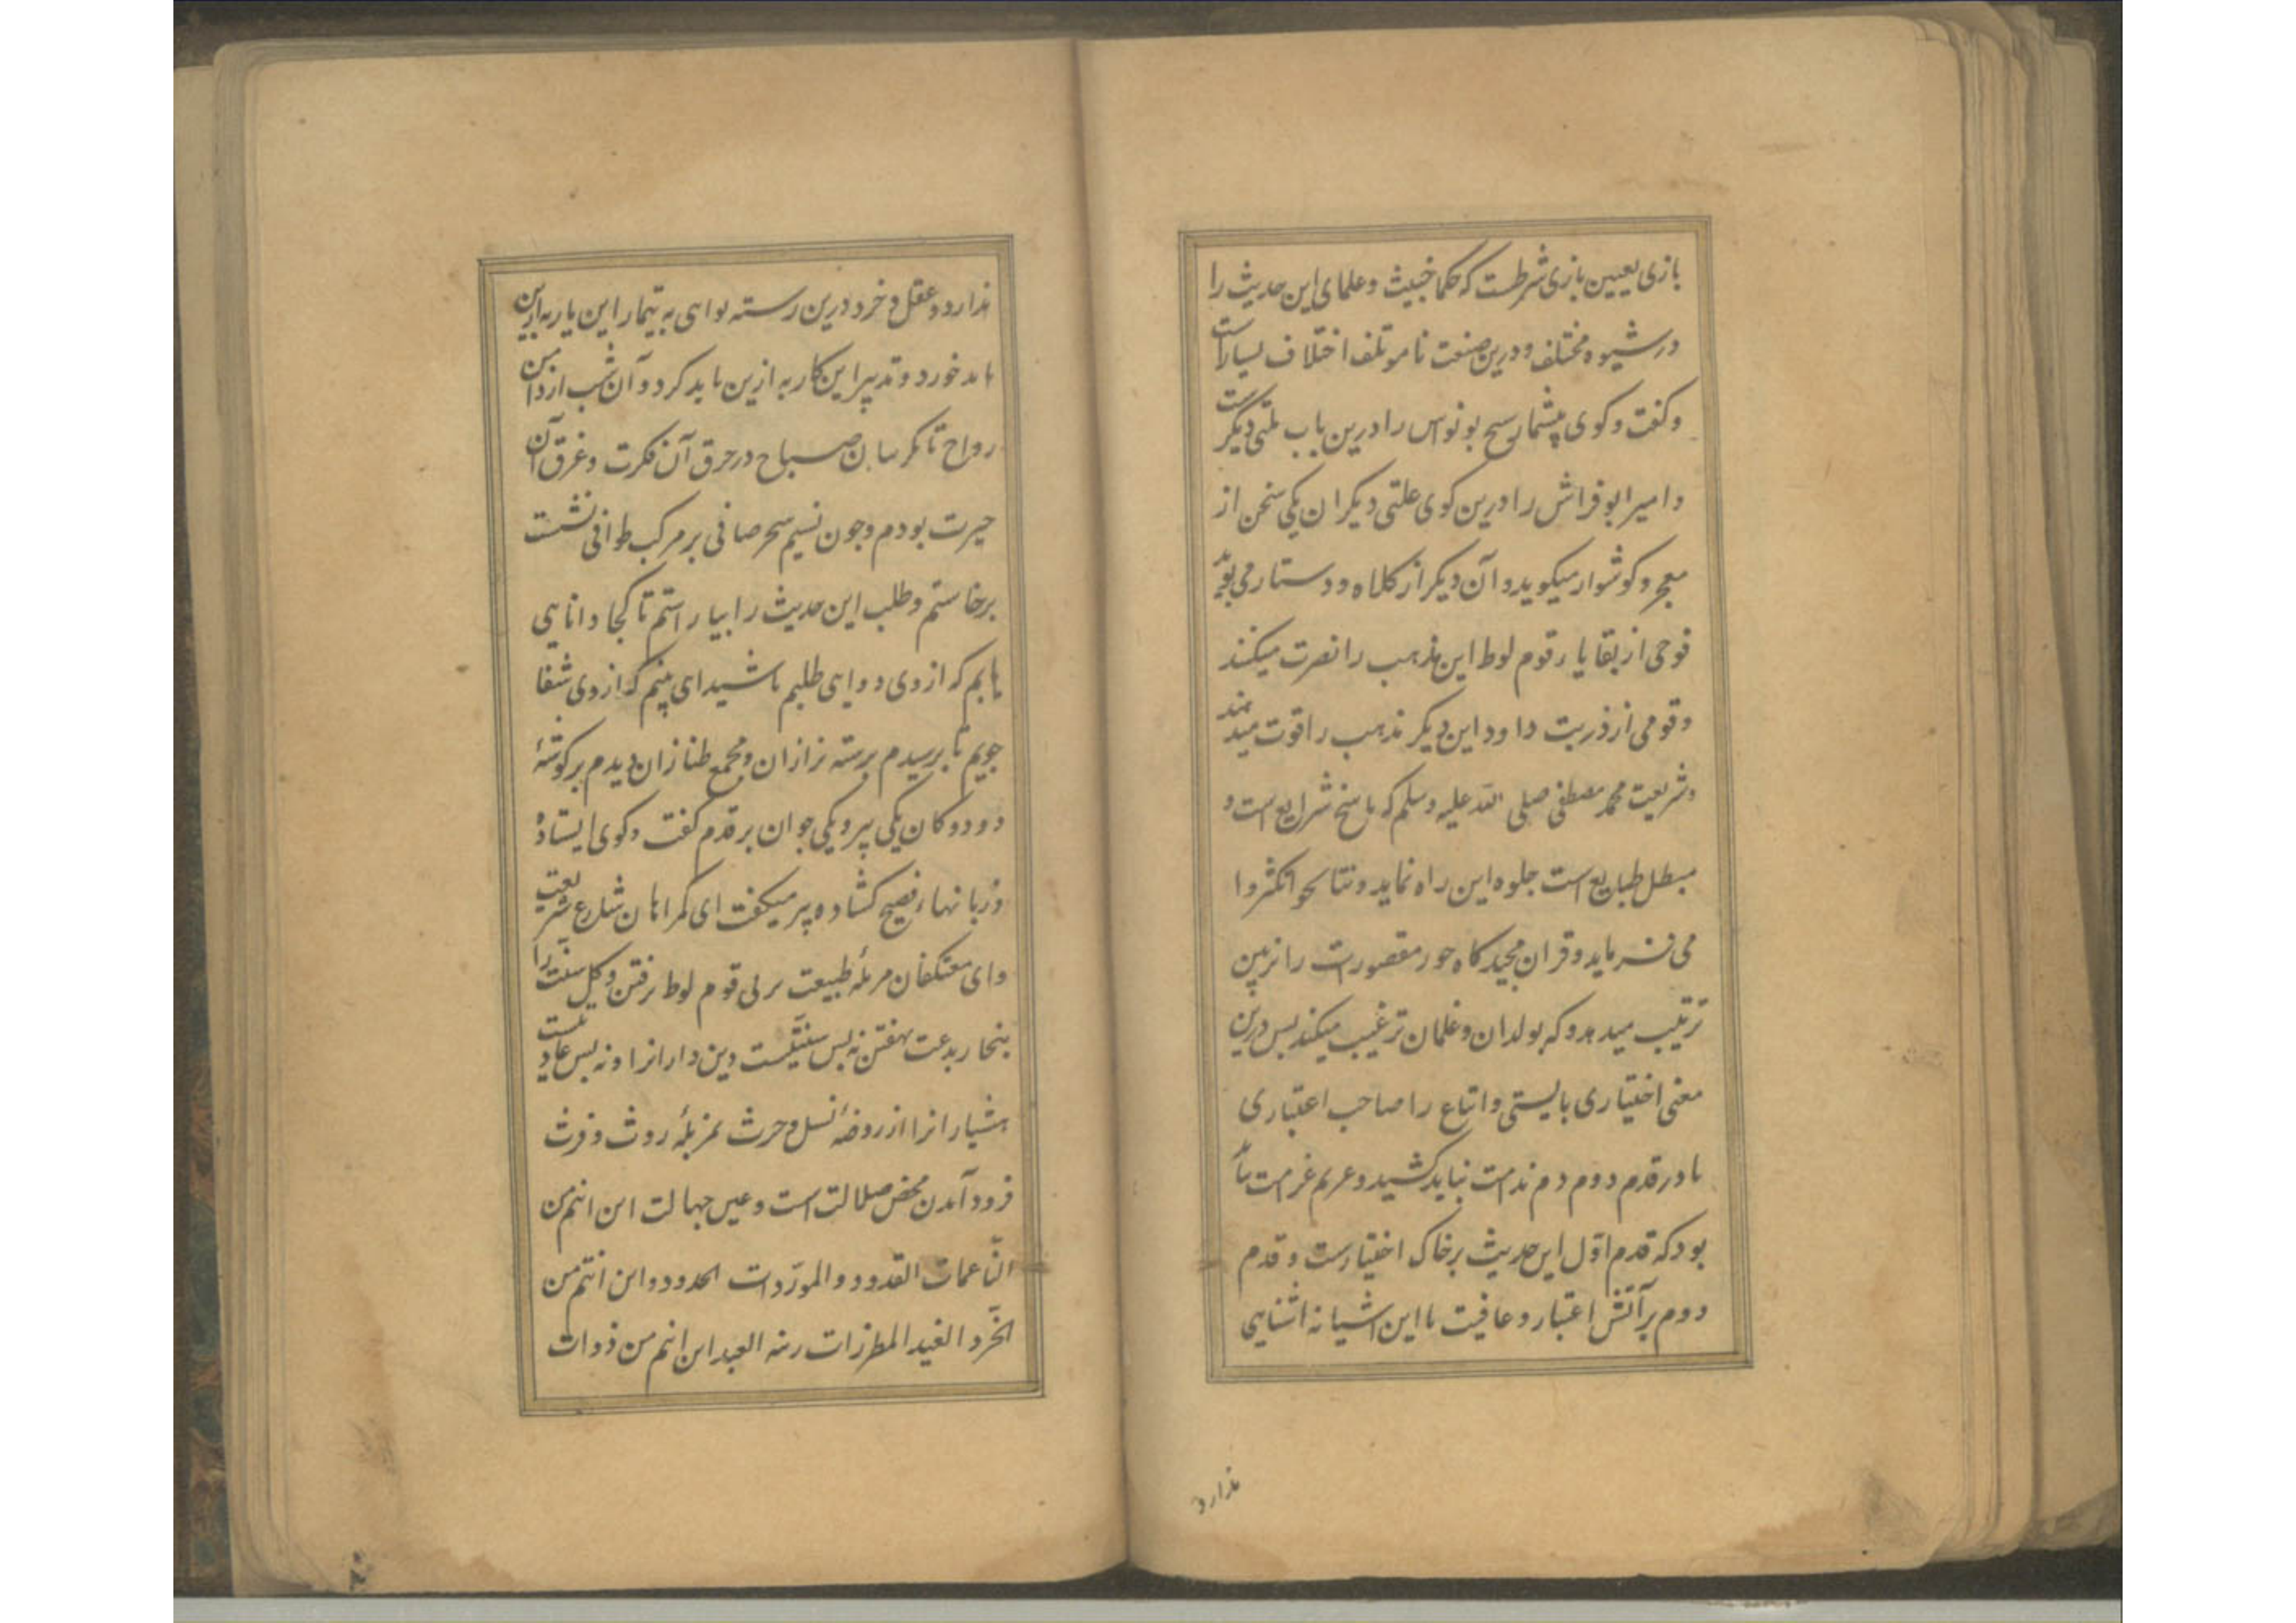 بازی یعیین بازی شرطست که حکما خبیث و علمای این حدیث را
در شیوه مختلف و درین صنعت نامؤتلف اختلاف بسیار است
و کفت و کوی پیشمار سح بونواس را درین باب ملتی دیگر ست
و امیر ابو فراش را درین کوی علتی دیکر ان یکی سخن از
معجر و کوشوار میکوید و آن دیکر از کلاه و دستار می بوید
فوجی از بقایا ر قوم لوط این مذهب را نصرت میکنند
و قومی از ذریت داود این دیکر مذهب را قوت میدهند
و شریعت محمد مصطفی صلی الله علیه و سلم که ناسخ شرایع است و
مبطل طبایع است جلوه این راه نماید و تناکحوا تکثروا
می فرماید و قران مجید کاه حور مقصورات را تزیین
ترتیب میدهد و که بولدان و غلمان ترغیب میکند بس درین
معنی اختیاری بایستی و اتباع را صاحب اعتباری
تا در قدم دوم دم ندامت نباید کشید و غریم غرامت
بود که قدم اول این حدیث بر خاک اختیارست و قدم
دوم بر آتش اعتبار و عافیت با این اشیانه اشنایی
ندارد
ندارد و عقل و خرد درین رسته نوایی به تیمار این یار به ازین
باید خورد و تدبیر این کار به ازین باید کرد و آن شب از دامن
رواح تا کریبان صباح در حرق آن فکرت و غرق آن
حیرت بودم و جون نسیم سحر صافی بر مرکب طوافی نشست
برخاستم و طلب این حدیث را بیاراستم تا کجا دانایی
یابم که از وی دوایی طلبم یا شیدای بینم که از وی شفا
جویم تا برسیدم برسته بزازان و مجمع طنازان دیدم بر کوشهٔ
دو دوکان یکی پیر و یکی جوان بر قدم کفت و کوی ایستاده
و زبانهاء فصیح کشاده پیر میکفت ای کمراهان شارع شریعت
و ای معتکفان مزبلهٔ طبیعت بر پی قوم لوط رفتن و کیل سنت را
بنجار بدعت نهفتن نه بس سنتیست دین دارانرا و نه بس عادتیست
هشیارانرا از روضهٔ نسل و حرث بمزبلهٔ روث و فرث
فرود آمدن محض ضلالت است و عین جهالت این انتم من
النّاعمات القدود و المورّدات الخدود و این انتم من
الخرّد الغید المطرزات العید این انتم من ذوات